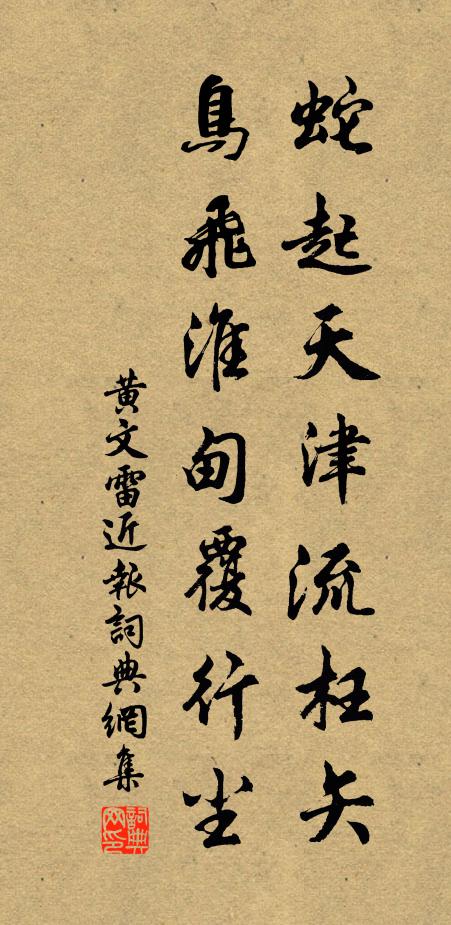 蛇起天津流枉矢
鳥飛淮甸覆行尘
黃文雷近報詞典網集
詞典
网印